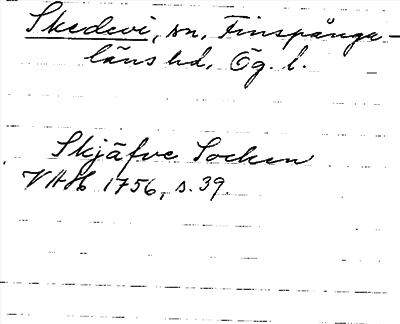 Skedevi, sn, Finspånga-
läns hd. Ög. l.
Skjäfve Socken
VAH 1756, s. 39.